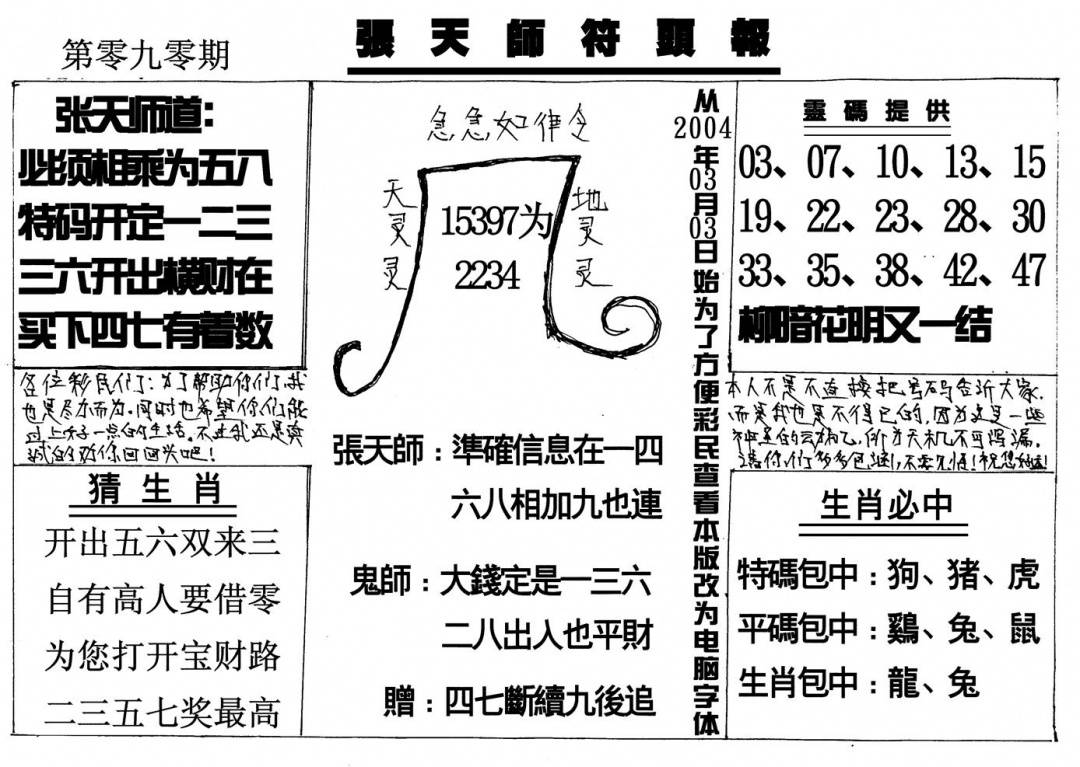 第零九零期
張天師符頭報
张天师道：
必须相乘为五八
特码开定一二三
三六开出横财在
买下四七有着数
各位彩民们：为了帮助你们，我
也是尽力而为。同时也希望你们能
过上好一点的生活。不过我还是真
诚的劝你回回头吧！
猜生肖
开出五六双来三
自有高人要借零
为您打开宝财路
二三五七奖最高
急急如律令
天灵灵
地灵灵
15397为
2234
張天師：準確信息在一四
六八相加九也連
鬼師：大錢定是一三六
二八出入也平財
贈：四七斷續九後追
从2004年03月03日始为了方便彩民查看本版改为电脑字体
靈碼提供
03、07、10、13、15
19、22、23、28、30
33、35、38、42、47
柳暗花明又一结
本人不是不直接把号码告诉大家，
而是我也是不得已的，因为这是一些
神圣的天机不可泄漏。
请你们多多包涵！
生肖必中
特碼包中：狗、猪、虎
平碼包中：鷄、兔、鼠
生肖包中：龍、兔